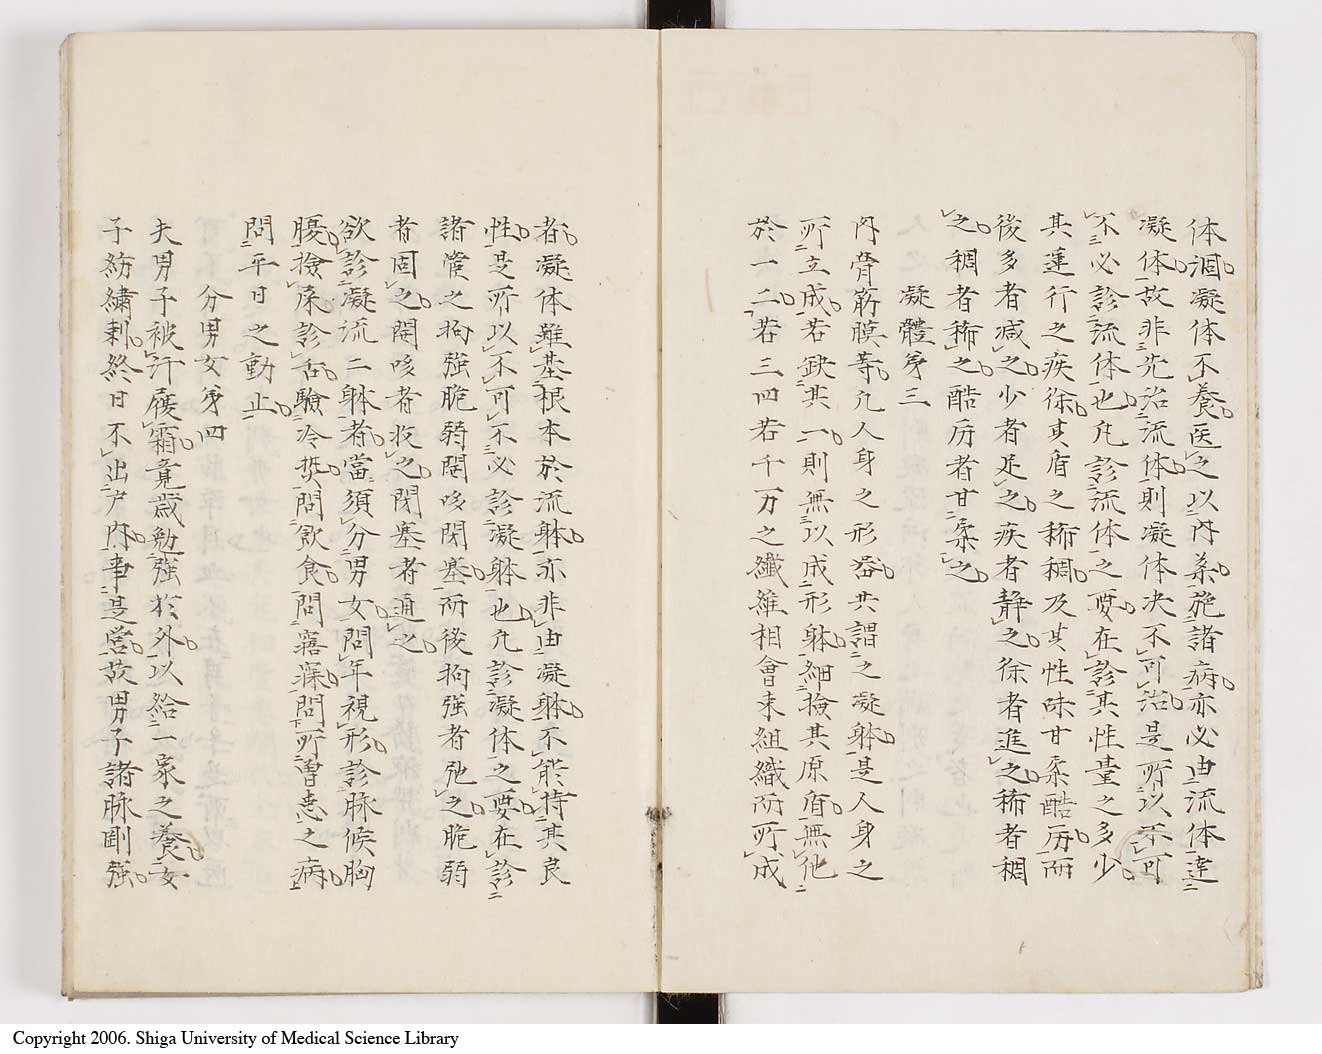 体涸凝体不養医之以內㭜施諸病亦必由流体達
凝体故非先治流体則凝体决不可治是所以不可
不必診流体也凡診流体之要在診其性量之多少
其運行之疾徐其質之稀稠及其性味甘柔酷厉而
後多者减之少者足之疾者静之徐者進之稀者稠
之稠者稀之酷厉者甘柔之
凝體第三
內骨筋膜等凡人身之形器共謂之凝躰是人身之
所立成若缺其一則無以成形躰細撿其原質無他
於一二若三四若千万之纎維相會来組織而所成
者凝体雖基根本於流躰亦非由凝躰不能持其良
性是所以不可不必診凝躰也凡診凝体之要在診
諸實之拘强脆弱閞㖟閉塞而後拘强者弛之脆弱
者固之閞㖟者收之閉塞者通之
欲診凝流二躰者當須分男女問年視形診脉候胸
腹撿屎診舌驗冷熱問飲食問寤寐問所曽患之病
問平日之動止
分男女第四
夫男子被汗履霜竟歳勉强於外以給一家之養女
子紡繍刺終日不出戸內事是営故男子諸脉剛强
Copyright 2006. Shiga University of Medical Science Library